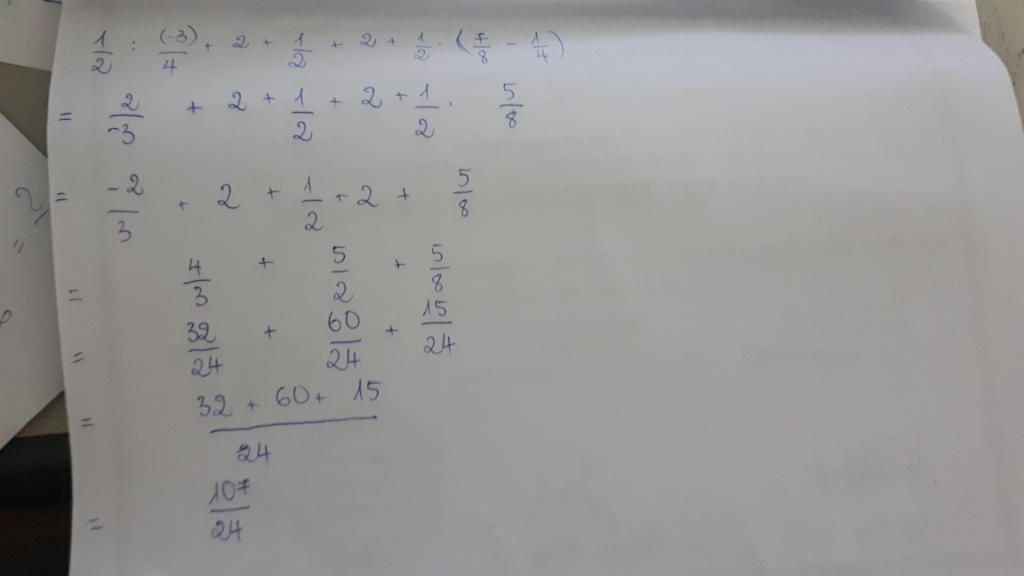 1/2 : (-3)/4 + 2 + 1/2 + 2 + 1/2 . (7/8 - 1/4)
= 2/-3 + 2 + 1/2 + 2 + 1/2 . 5/8
= -2/3 + 2 + 1/2 + 2 + 5/8
= 4/3 + 5/2 + 5/8
= 32/24 + 60/24 + 15/24
= 32 + 60 + 15 / 24
= 107/24